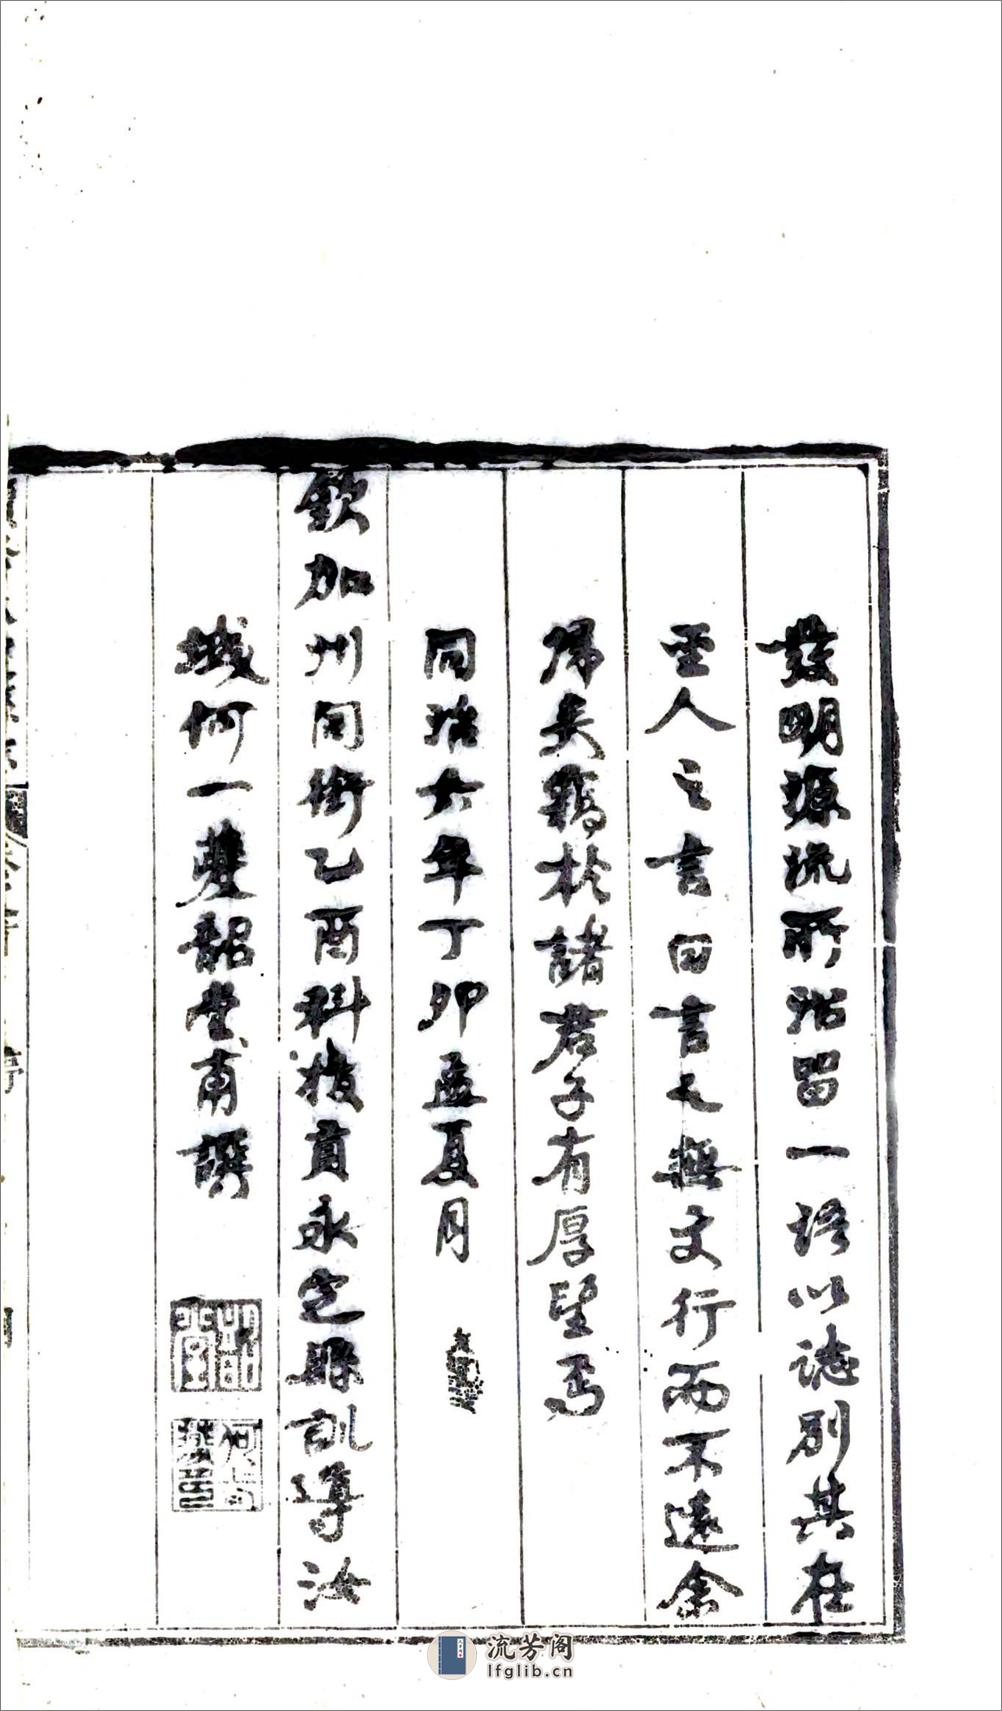 發明源流所沿留一語以誌別其在
至人之言曰言之無文行而不遠余
歸矣竊於諸君子有厚望焉
同治六年丁卯孟夏月
欽加州同銜乙酉科拔貢永定縣訓導汝
城何一雙韶堂甫譔
韶堂
流芳阁
lfglib.cn